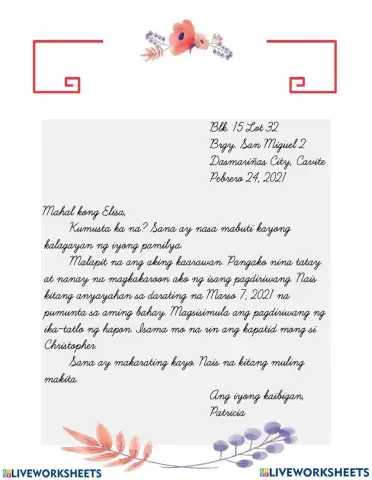 Blk. 15 Lot 32
Brgy. San Miguel 2
Dasmariñas City, Cavite
Pebrero 24, 2021
Mahal kong Elisa,
Kumusta ka na? Sana ay nasa mabuti kayong
kalagayan ng iyong pamilya.
Malapit na ang aking kaarawan. Pangako nina tatay
at nanay na magkakaroon ako ng isang pagdiriwang. Nais
kitang anyayahan sa darating na Marso 7, 2021 na
pumunta sa aming bahay. Magsisimula ang pagdiriwang ng
ika-tatlo ng hapon. Isama mo na rin ang kapatid mong si
Christopher.
Sana ay makarating kayo. Nais na kitang muling
makita.
Ang iyong kaibigan,
Patricia
LIVEWORKSHEETS
LIVEWORKSHEETS